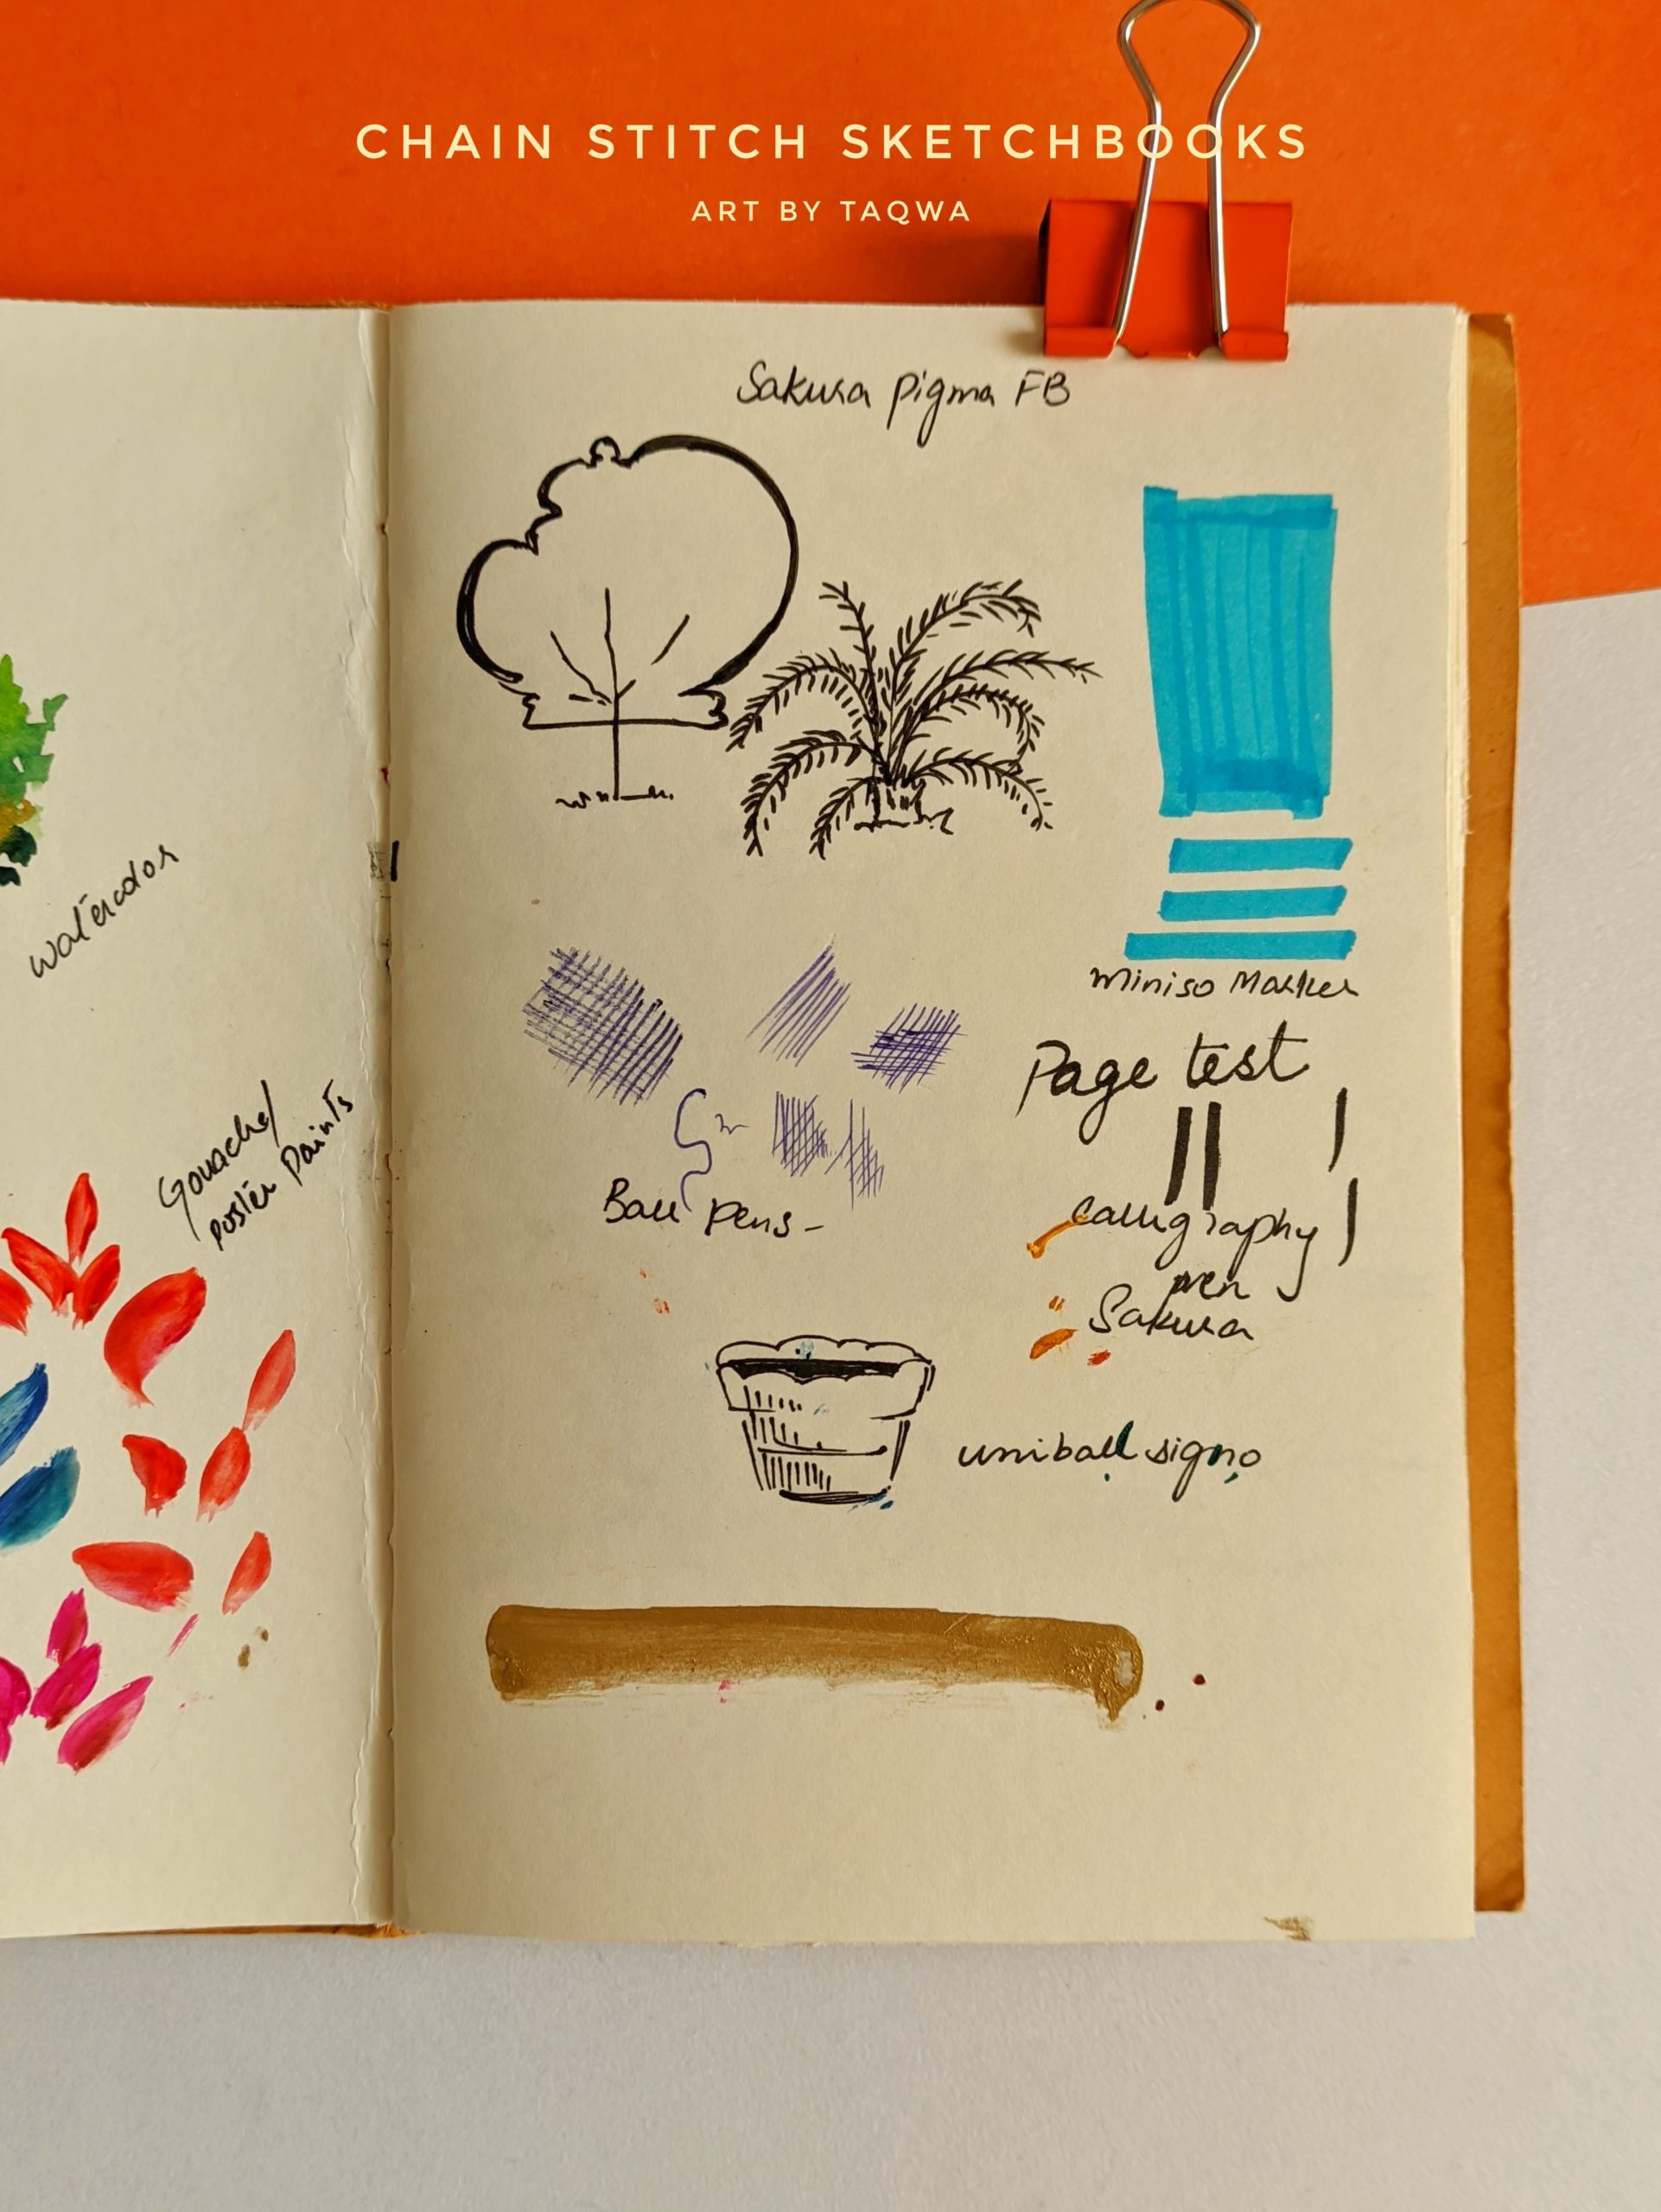 CHAIN STITCH SKETCHBOOKS
ART BY TAQWA
Sakura Pigma FB
watercolor
Gouache/
Poster Paints
Miniso Marker
Page test
Calligraphy
pen
Sakura
Ball Pens-
uniball signo